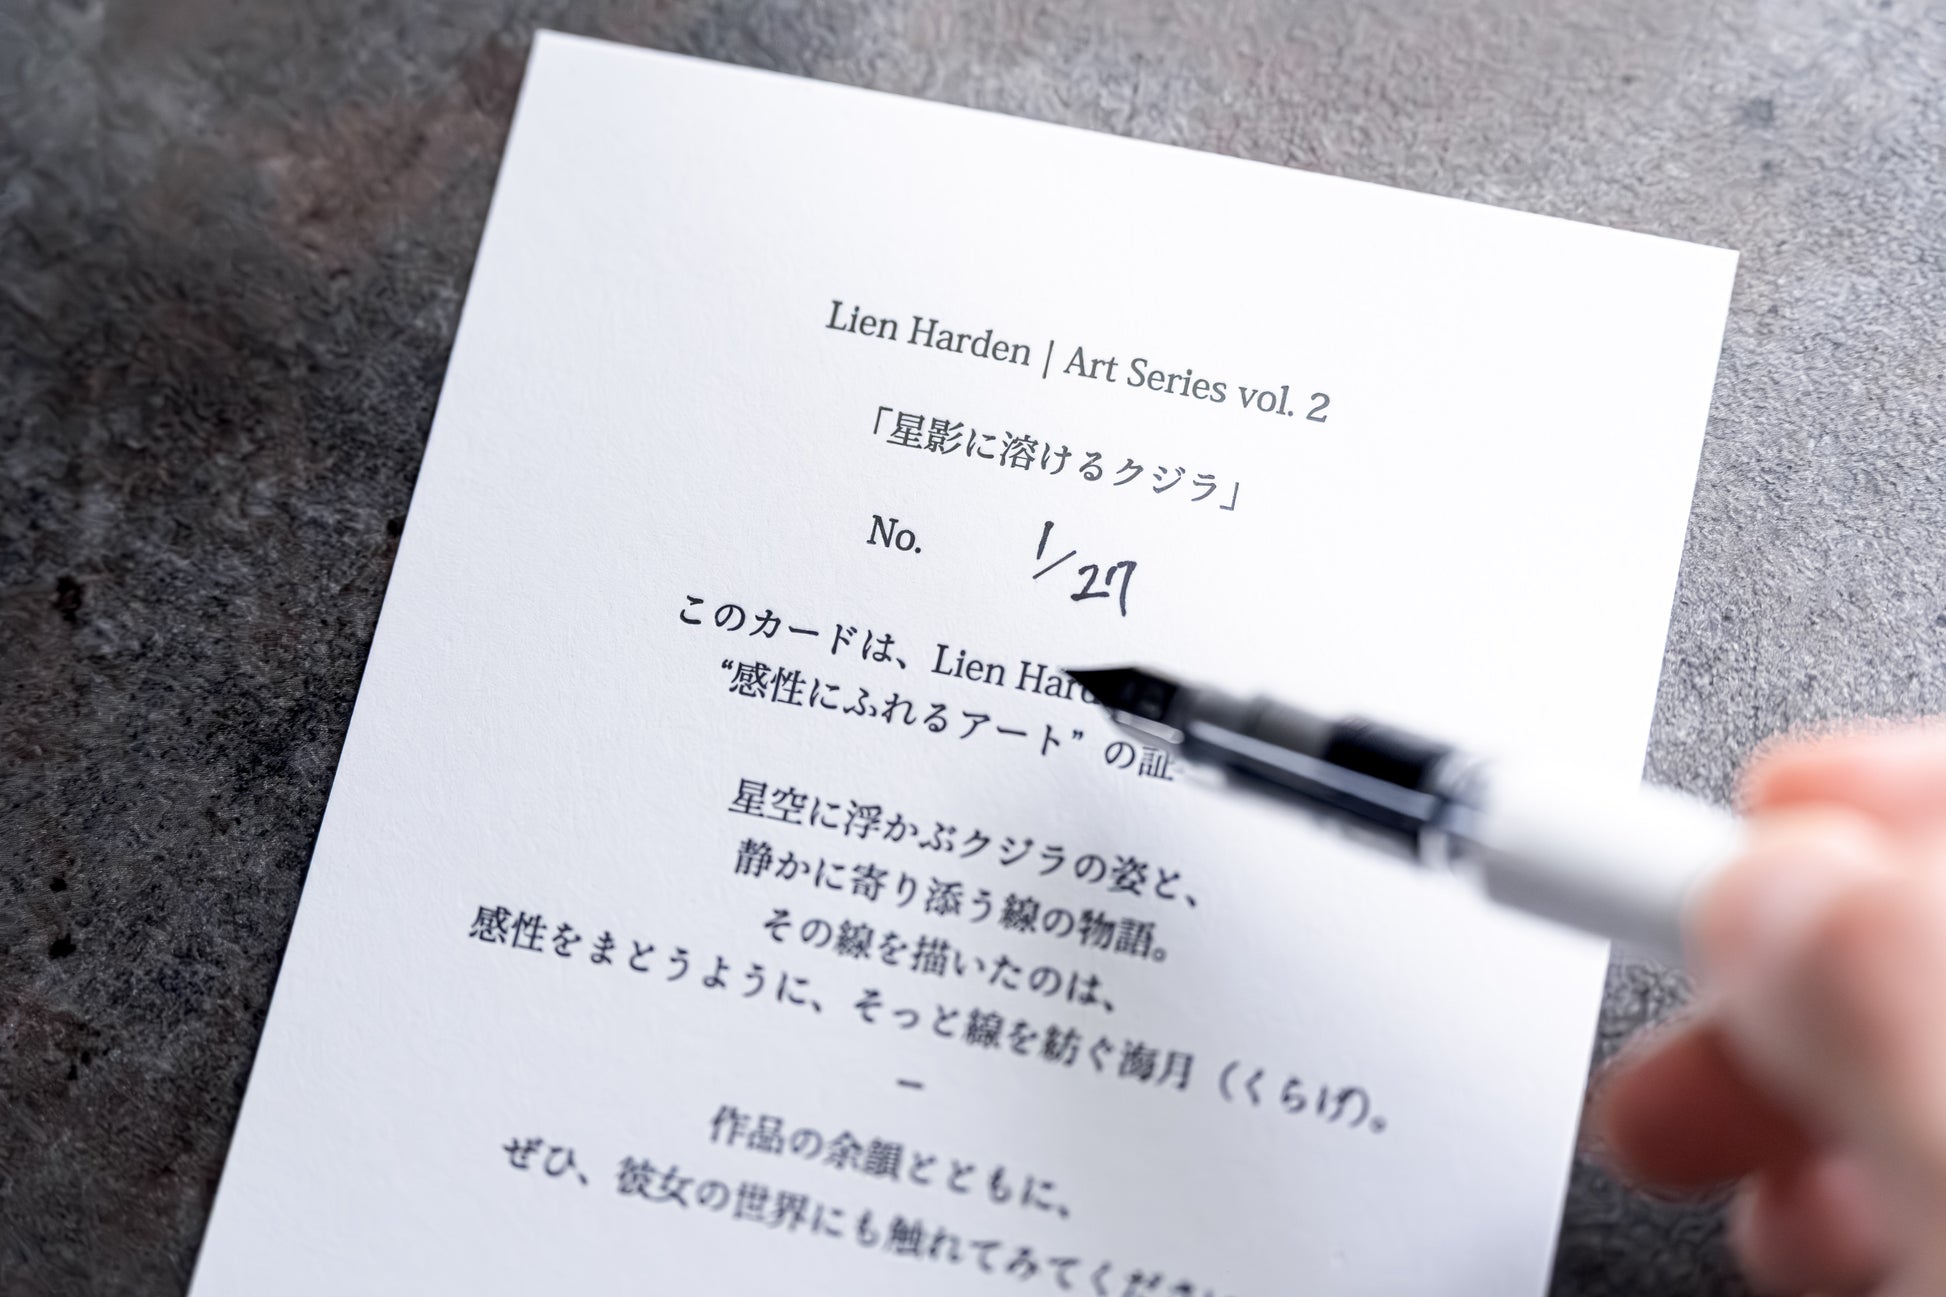 Lien Harden | Art Series vol. 2
「星影に溶けるクジラ」
No. 1/27
このカードは、Lien
“感性にふれるアート” の証
星空に浮かぶクジラの姿と、
静かに寄り添う線の物語。
その線を描いたのは、
感性をまとうように、そっと線を紡ぐ海月（くらげ）。
–
作品の余韻とともに、
ぜひ、彼女の世界にも触れてみてください